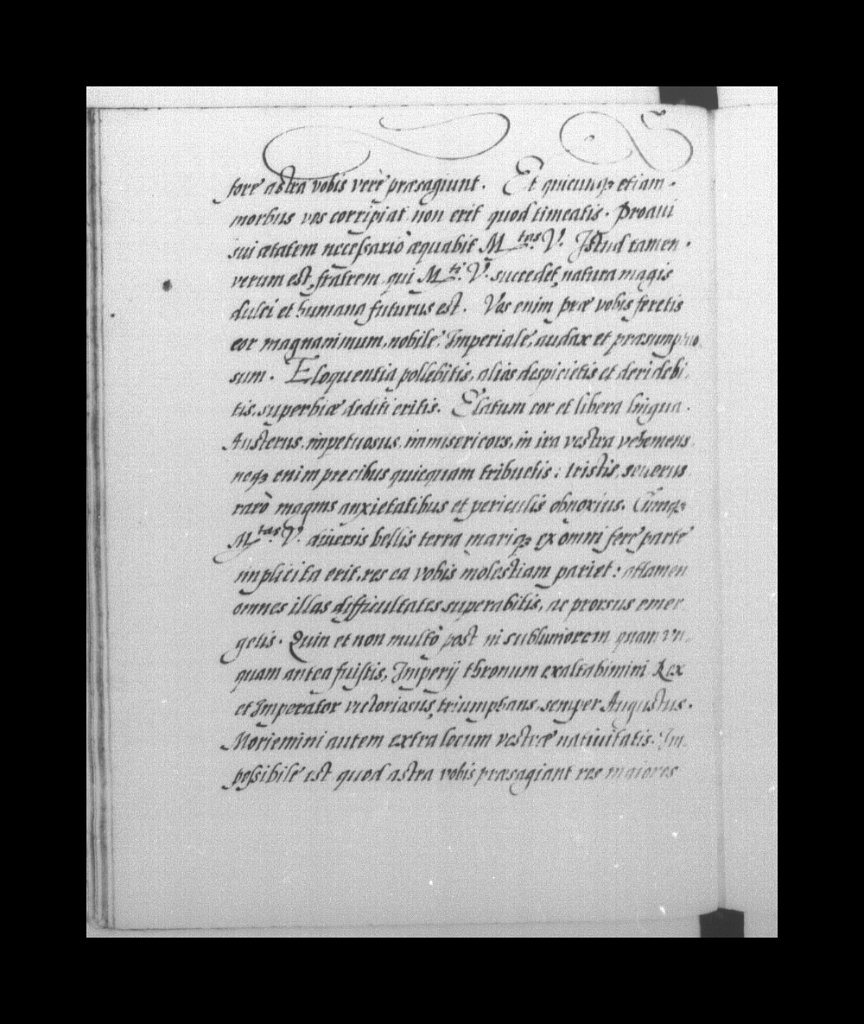 fore astra vobis verè præsagiunt. Et quicunqꝫ etiam
morbus vos corripiat non erit quod timeatis. Proavi
sui ætatem necessariò æquabit M.tas V. Istud tamen
verum est, fratrem, qui M.ti V. succedet, natura magis
dulci et humana futurus est. Vos enim præ vobis feretis
cor magnanimum, nobile, Imperiale, audax et præsumptuo
sum. Eloquentia pollebitis, alios despicietis et deridebi
tis, superbiæ dediti eritis. Elatum cor et libera lingua.
Austerus, impetuosus, immisericors, in ira vestra vehemens
neqꝫ enim precibus quicquam tribuetis: tristis, severus
rarò magnis anxietatibus et periculis obnoxius. Cumqꝫ
M.tas V. diversis bellis terra mariqꝫ ex omni fere parte
implicita erit, res ea vobis molestiam pariet: attamen
omnes illas difficultates superabitis, ac prorsus emer
getis. Quin et non multò post in sublimiorem quam un
quam antea fuistis, Imperij thronum exaltabimini Rex
et Imperator victoriosus, triumphans, semper Augustus.
Moriemini autem extra locum vestræ nativitatis. Im
possibile est quod astra vobis præsagiant res maiores